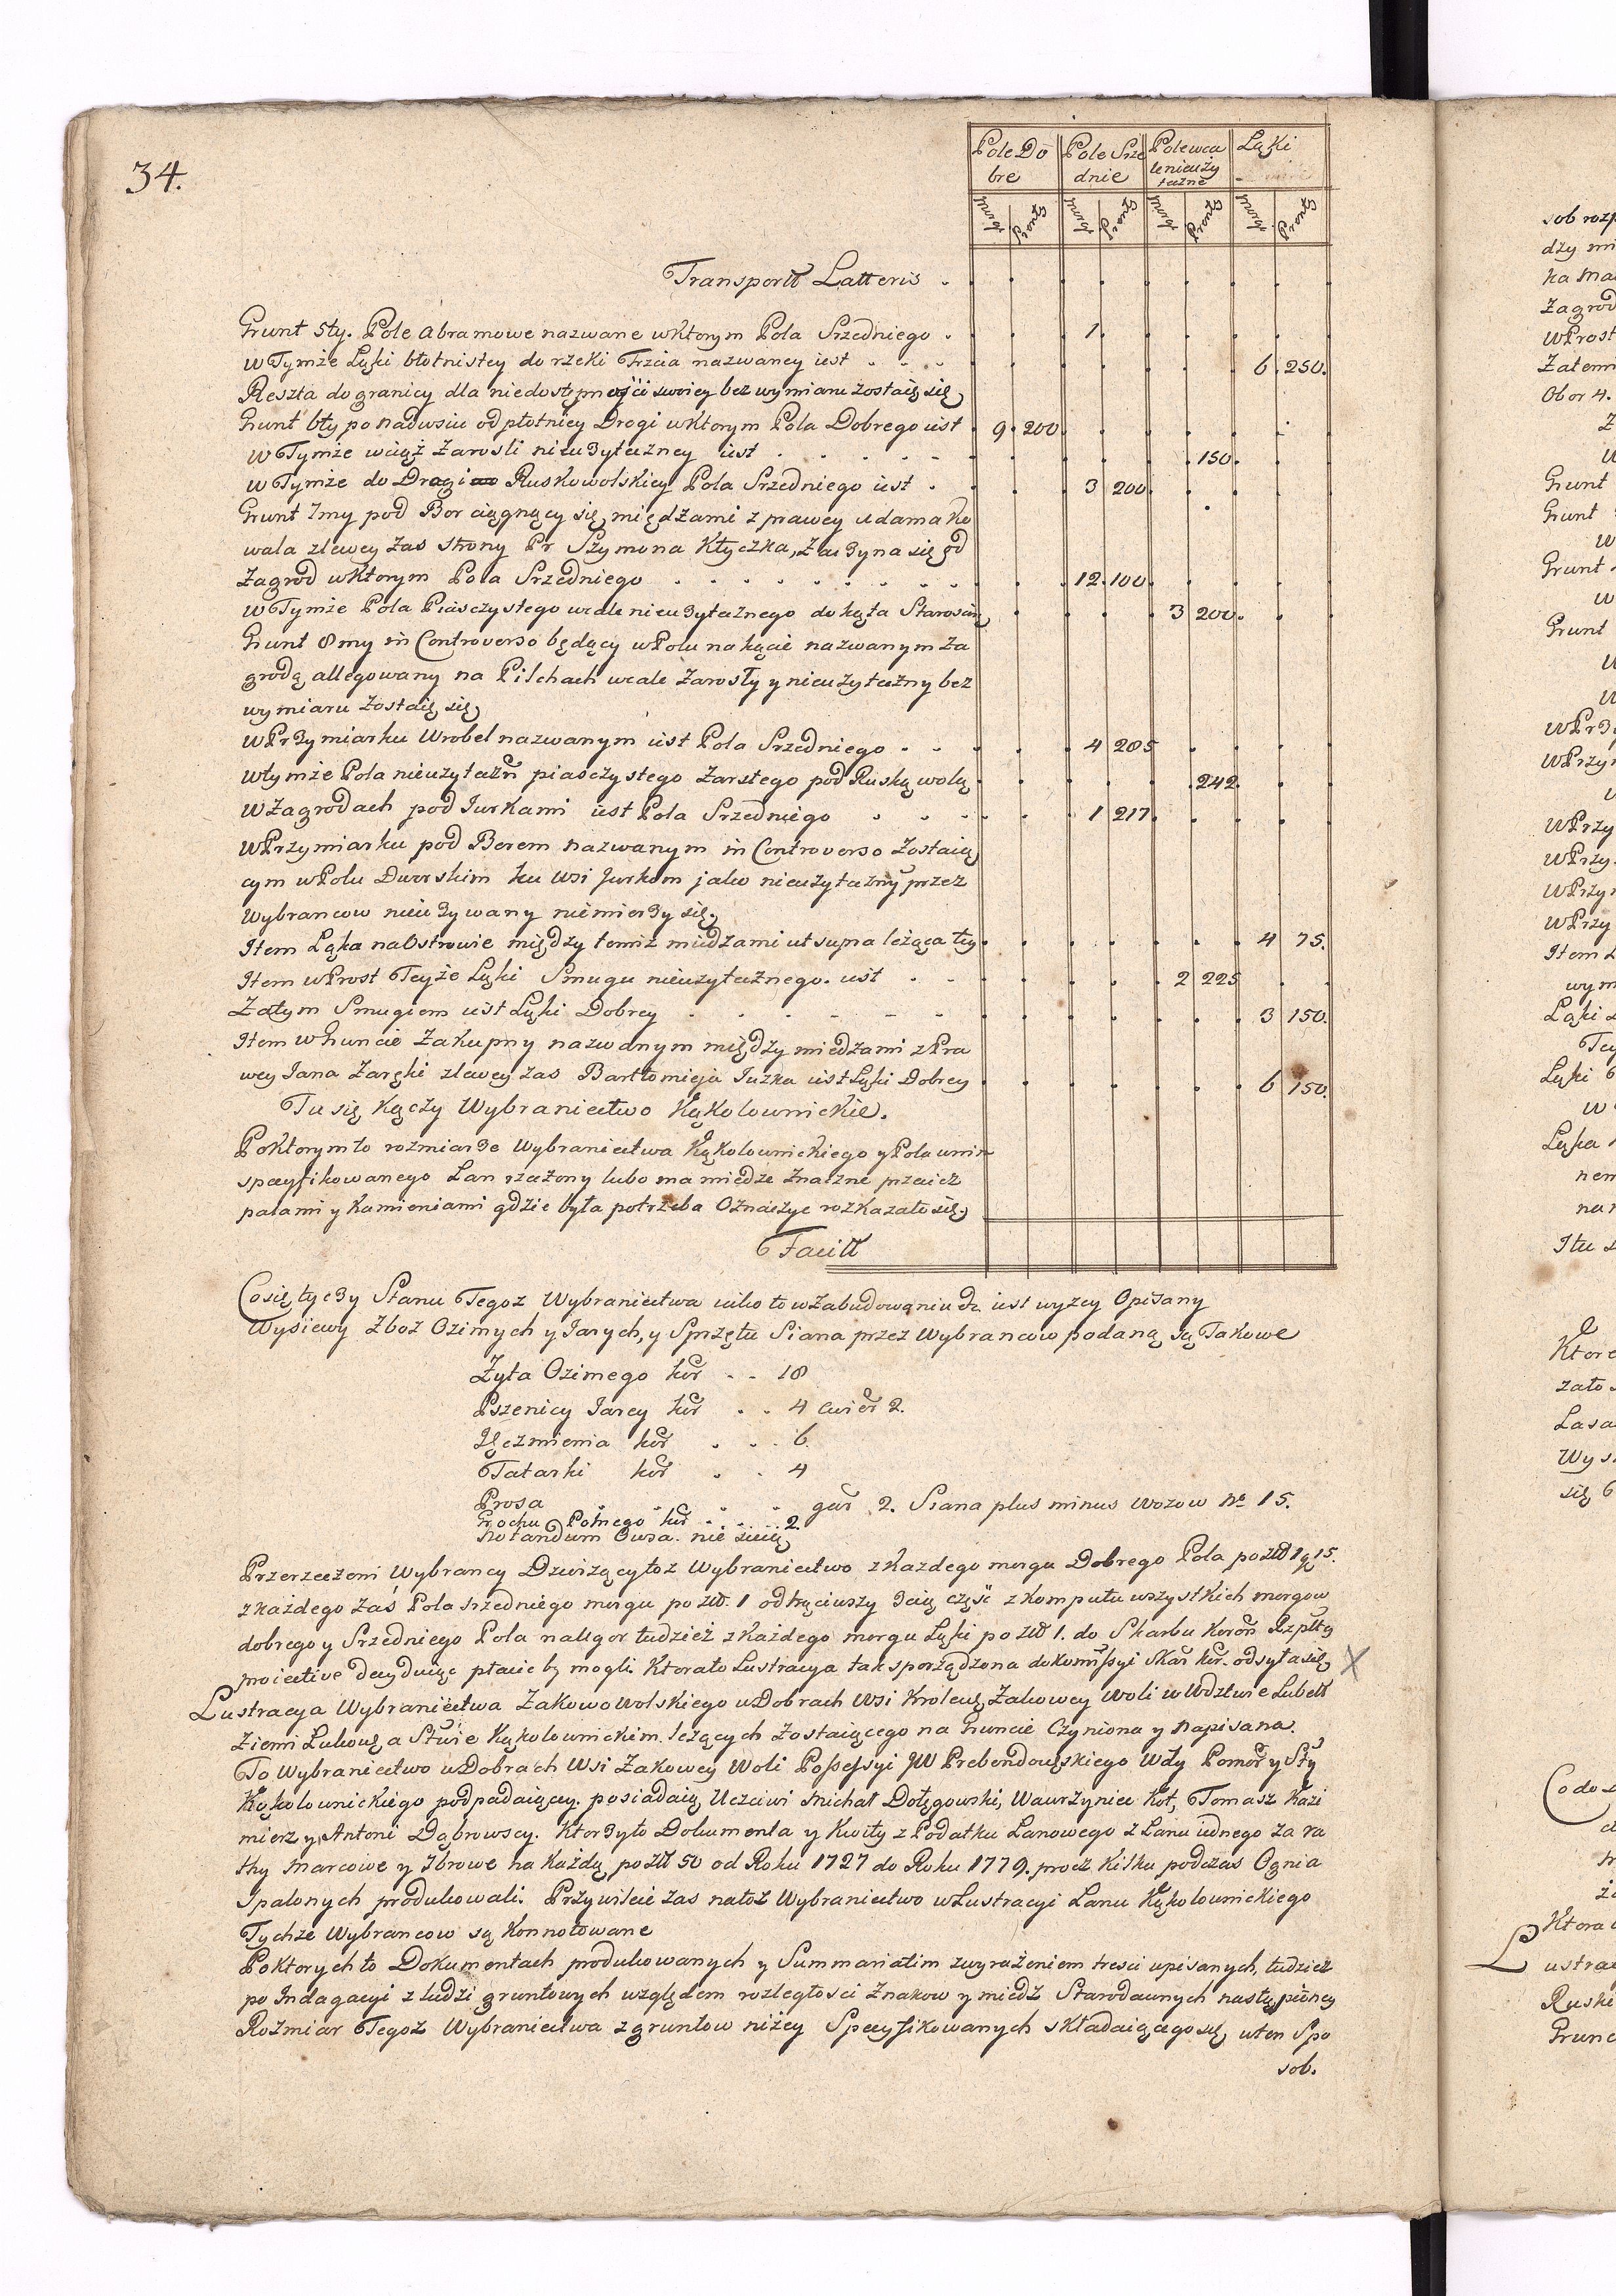 34.
Pole Do Pole Srze Pole wca Łąki
bre dnie le nieuży
teczne
Morgi Pręty Morgi Pręty Morgi Pręty Morgi Pręty
Transportt Latteris
Grunt 5ty. Pole Abramowe nazwane wktorym Pola Srzedniego 1.
w Tymże Łąki błotnistey do rzeki Trzcia nazwaney iest 6. 250.
Reszta do granicy dla niedostępności swoiey bez wymiaru zostaię się
Grunt 6ty po nadwsiu od płotnicy Drogi wktorym Pola Dobrego iest 9. 200
w Tymże wciąż Zarosli nieużyteczney iest 150.
w Tymże do Drogi Ruskowolskiey Pola Srzedniego iest 3 200
Grunt 7my pod Bor ciągnący się miedzami z prawey Adama Ko
wala zlewey zas strony Pr Szymona Kłyczka, Zaczyna się od
Zagrod wktorym Pola Srzedniego 12. 100
w Tymże Pola Piasczystego wcale nieużytecznego do kąta Starościn 3 200.
Grunt 8my in Controverso będący w Polu na kącie nazwanym Za
grodą allegowany na Pilchach wcale Zarosły y nieużyteczny bez
wymiaru Zostaię się
w Przymiarku Wrobel nazwanym iest Pola Srzedniego 4 205
w tymże Pola nieużyteczn piasczystego Zarstego pod Ruską wolą 242.
W Zagrodach pod Jurkami iest Pola Srzedniego 1 217
w Przymiarku pod Borem nazwanym in Controverso Zostaią
cym w Polu Dworskim ku wsi Jurkom jako nieużyteczny przez
Wybrancow nieużywany niemierzy się
Item Łąka na Ostrowie między temiż miedzami ut supra leżąca 4 75.
Item w Prost Teyże Łąki Smugu nieużytecznego iest 2 225
Zatym Smugiem iest Łąki Dobrey 3 150.
Item w Gruncie Zakupny nazwanym między miedzami z Pra
wey Jana Zaręki zlewey zas Bartłomieja Juzka iest Łąki Dobrey 6 150.
Tu się kączy Wybraniectwo Kąkolownickie.
Po ktorym to rozmiarze Wybraniectwa Kąkolownickiego y Pola wnim
specyfikowanego Lan rzeczony lubo ma miedze znaczne przecież
palami y kamieniami gdzie była potrzeba Oznaczyc rozkazało się
Facitt
Co się tyczy Stanu Tegoz Wybraniectwa iako to w Zabudowaniu &c. iest wyzey Opisany
Wysiewy Zboz Ozimych y Jarych, y Sprzętu Siana przez Wybrancow podaną są Takowe
Żyta Ozimego kor 18
Pszenicy Jarey kor 4 cwier 2.
Jęczmienia kor 6.
Tatarki kor 4
Prosa gar 2. Siana plus minus wozow No 15.
Grochu Polnego kor 2.
Notandum Owsa nie sieią
Przerzeczeni Wybrancy Dzierżący toż Wybraniectwo z każdego morgu Dobrego Pola po złł 1 g 15.
z każdego zaś Pola srzedniego morgu po złł. 1 odtrąciwszy 3cią część z komputu wszystkich morgow
dobrego y Srzedniego Pola na ugor tudzież z każdego morgu Łąki po złł 1. do Skarbu Koron Rzpltey
proiective decyduiąc płacić by mogli. Ktorato Lustracya tak sporządzona do kommissyi Skar kor. odsyła się X
Lustracya Wybraniectwa Zakowowolskiego w Dobrach Wsi Krolews Zakowey Woli w Wdztwie Lubelt
Ziemi Lukows a Stwie Kąkolownickim leżących Zostaiącego na Gruncie Czyniona y Napisana.
To Wybraniectwo w Dobrach Wsi Zakowey Woli Possessyi JW Prebendowskiego Wdy Pomor y Sty
Kąkolownickiego podpadaiącey posiadaią Uczciwi Michał Dołęgowski, Wawrzyniec Kot, Tomasz Kazi
mierz y Antoni Dąbrowscy. Ktorzy to Dokumenta y Kwity z Podatku Lanowego z Lanu iednego za ra
thy Marcowe y 7browe na każdą po złł 50 od Roku 1727 do Roku 1779. procz kilku podczas Ognia
Spalonych produkowali. Przywileie zas na toż Wybraniectwo w Lustracyi Lanu Kąkolownickiego
Tychże Wybrancow są konnotowane
Po ktorych to Dokumentach produkowanych y Summariatim z wyrażeniem tresci upisanych, tudzież
po Indagacyi z ludzi gruntowych względem rozległosci Znakow y miedz Starodawnych następiony
Rozmiar Tegoż Wybraniectwa z gruntow niżey Specyfikowanych składaiącego się w ten Spo
sob.